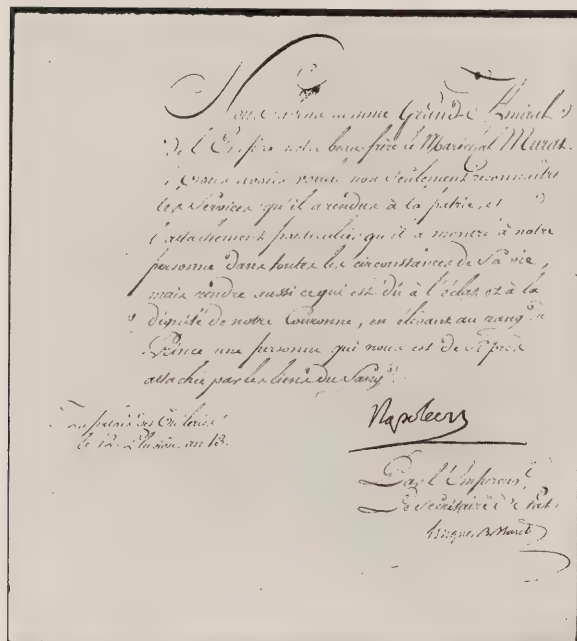 Nous avons nommé Grand Amiral
de l'Empire notre beau-frère le Maréchal Murat.
Nous avons voulu non seulement reconnaître
les services qu'il a rendus à la patrie, et
l'attachement particulier qu'il a montré à notre
personne dans toutes les circonstances de sa vie,
mais rendre aussi ce qui est dû à l'éclat et à la
dignité de notre Couronne, en élevant au rang de
Prince une personne qui nous est de si près
attachée par les liens du Sang.
Au palais des Tuileries
le 12. Pluviôse an 13.
Napoléon
Par l'Empereur,
Le Secrétaire d'Etat.
Hugues B. Maret